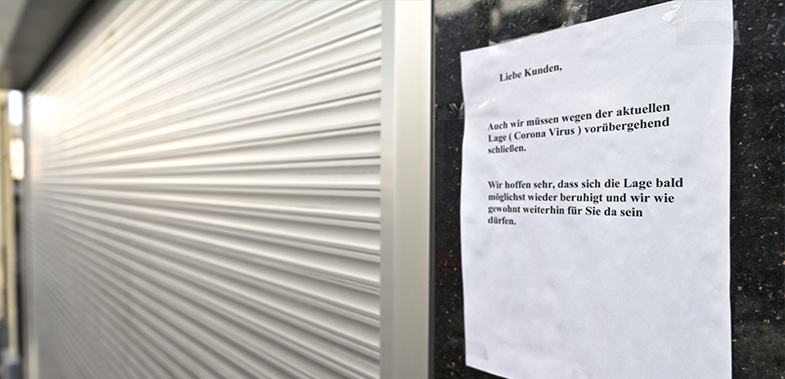 Liebe Kunden,
Auch wir müssen wegen der aktuellen
Lage ( Corona Virus ) vorübergehend
schließen.
Wir hoffen sehr, dass sich die Lage bald
möglichst wieder beruhigt und wir wie
gewohnt weiterhin für Sie da sein
dürfen.